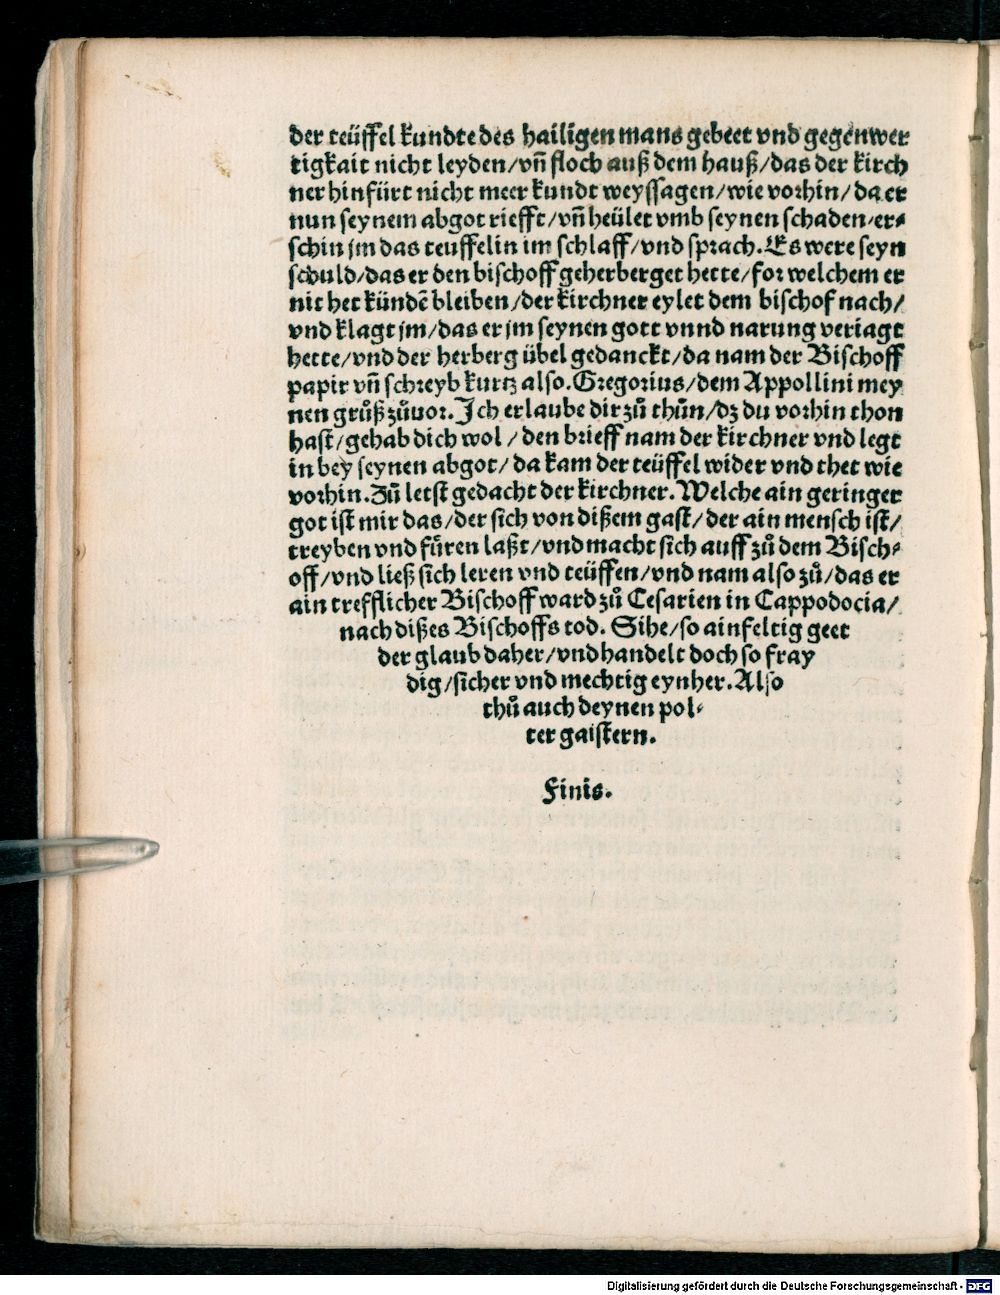 der teüffel kundte des hailigen mans gebeet vnd gegenwer
tigkait nicht leyden/vñ floch auß dem hauß/das der kirch
ner hinfürt nicht meer kundt weyssagen/wie vorhin/da er
nun seynem abgot riefft/vñ heület vmb seynen schaden/er⸗
schin jm das teuffelin im schlaff/vnd sprach. Es were seyn
schuld/das er den bischoff geherberget hette/for welchem er
nit het kündē bleiben/der kirchner eylet dem bischof nach/
vnd klagt jm/das er jm seynen gott vnnd narung veriagt
hette/vnd der herberg übel gedanckt/da nam der Bischoff
papir vñ schreyb kurtz also. Gregorius/dem Appollini mey
nen gruͦß zuͦuor. Ich erlaube dir zuͦ thuͦn/dz du vorhin thon
hast/gehab dich wol/den brieff nam der kirchner vnd legt
in bey seynen abgot/da kam der teüffel wider vnd thet wie
vorhin. Zuͦ letst gedacht der kirchner. Welche ain geringer
got ist mir das/der sich von dißem gast/der ain mensch ist/
treyben vnd fuͤren laßt/vnd macht sich auff zuͦ dem Bisch⸗
off/vnd ließ sich leren vnd teüffen/vnd nam also zuͦ/das er
ain trefflicher Bischoff ward zuͦ Cesarien in Cappodocia/
nach dißes Bischoffs tod. Sihe/so ainfeltig geet
der glaub daher/vnd handelt doch so fray
dig/sicher vnd mechtig eynher. Also
thuͦ auch deynen pol⸗
ter gaistern.
Finis.
Digitalisierung gefördert durch die Deutsche Forschungsgemeinschaft - DFG